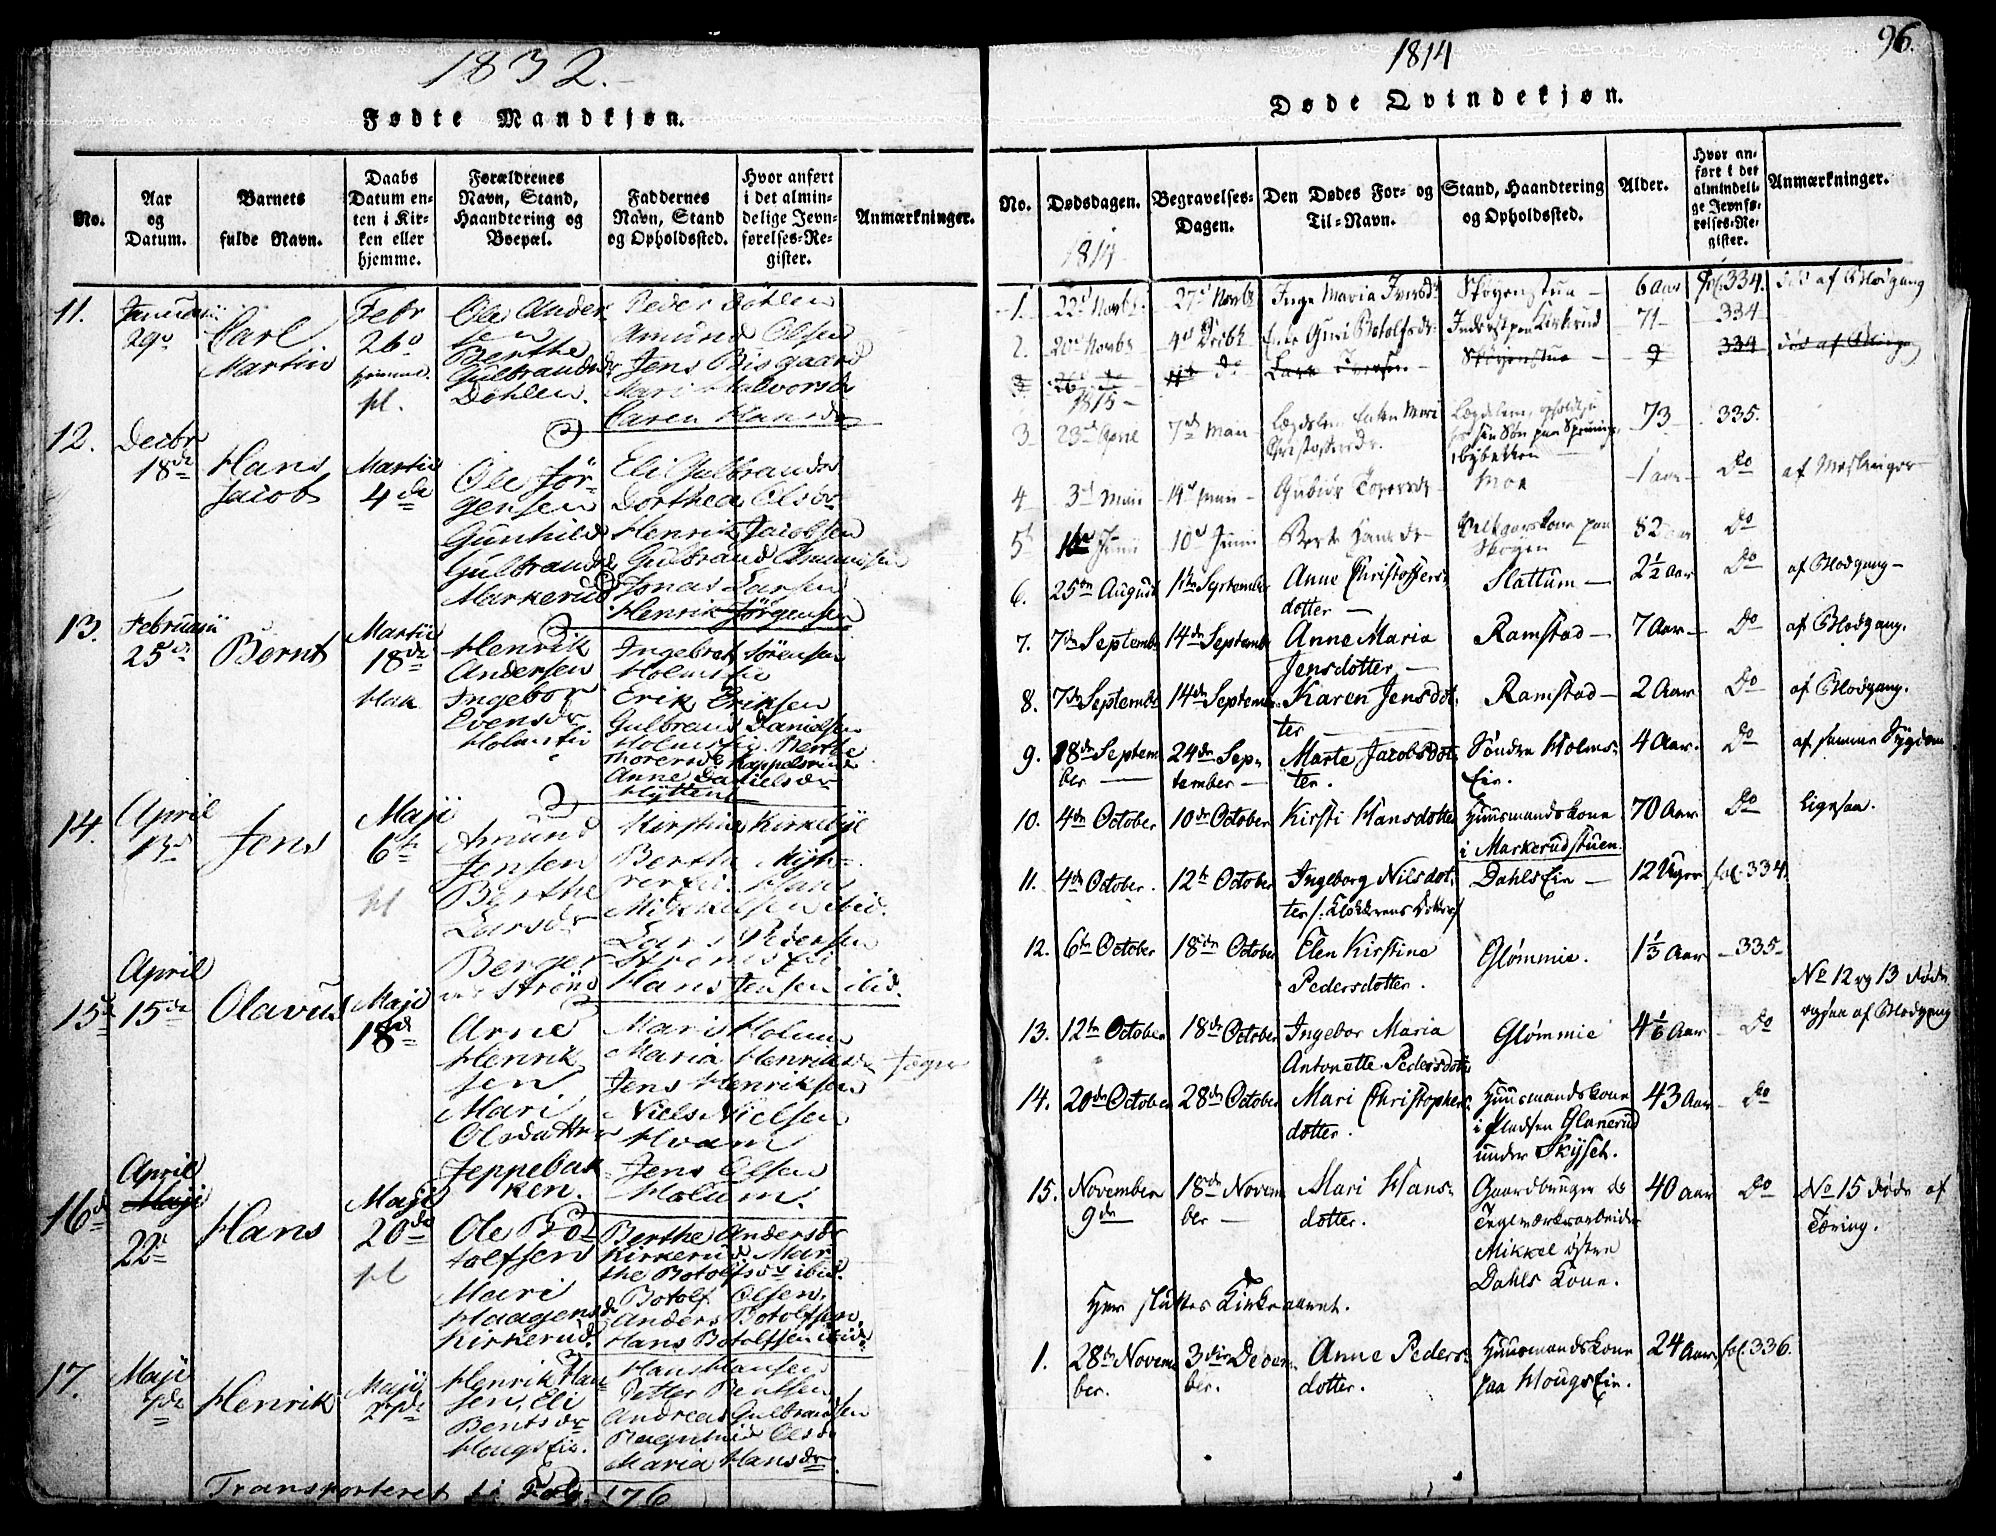 1832.
Fødte Mandkjøn.
No.
Aar og Datum.
Barnets fulde Navn.
Daabs Datum enten i Kirken eller hjemme.
Forældrenes Navn, Stand, Haandtering og Boepæl.
Faddernes Navn, Stand og Opholdssted.
Hvor anført i det almindelige Jevnførelses-Register.
Anmærkninger.
11.
29d
Carl
Martin
Febr
26d
hjemme.
Ole Ander
sen
Berthe
Gulbrandsdr
Dohlen.
Peder Dohlen
Amund Olsen
Jens Bisgaard
Mari Halvorsdr
Caren Hansdr
12.
Decbr
18de
Hans
Jacob
Martii
4de
Ole Jör-
gensen
Gunhild
Gulbrandsdr
Markerud
Eli Gulbrandsdr
Dorthea Olsdr
Henrik Jacobsen
Gulbrand
Jonas Larsen
Henrik Jörgensen
13.
Februarii
25de
Bernt
Martii
18de
Henrik
Andersen
Ingebor
Evensdr
Holmsfie
Ingebret Sörensen
Holmsfie
Erik Eriksen
Gulbrand Danielsen
Holmsfie Berthe
Thoresdr Kappelsrud
Anne Danielsdr
Hyttent
14.
April
13d
Jens
Maji
6te
Amund
Jensen
Berthe
Larsdr
Berger
Strönd
Kirstine Kirkebye
Berthe Myh-
Hans
Mikkelsen ibid.
Lars Pedersen
Hans Jensen ibid.
15d
April
15de
Olavus
Maji
18d
Arne
Henrik
sen
Mari
Olsdatter
Jeppebak
ken.
Mari Holum
Maria Henriksdr
Jens Henriksen
Niels Nielsen
Hvam
Jens Olsen
Holum.
16d
April
Maji
22d
Hans
Maji
20de
Ole Bo-
tolfsen
Mari
Haagensdr
Kirkerud.
Berthe Andersdr
Kirkerud. Mar-
the Botolfsdr ibid.
Botolf Olsen.
Anders Botolfsen.
Hans Botolfsen ibid.
17.
Maji
Henrik
Maji
27de
Henrik Han
sen, Eli
Bentsdr
Hougsfie.
Hans Hansen
Petter Bentsen
Andreas Gulbrandsen
Ragnhild Olsdr
Maria Hansdr
Transporteret til Fol. 176
96.
1814
Døde Qvindekjøn.
No.
Dødsdagen.
Begravelses-Dagen.
Den Dødes For- og Til-Navn.
Stand, Haandtering og Opholdssted.
Alder.
Hvor anført i det almindelige Jevnførelses-Register.
Anmærkninger.
1814
1. 22d Novbr. 27d Novbr Inge Maria Iversdr Skøyenstua - 6 Aar Fol. 334. død af Blodgang
2. 20d Novbr 4d Decbr Enke Guri Botolfsdr. Inderst paa Kirkerud 71 334
3 26 do do Skøyenstua 9 334 død af
1815
3 23d April 7de Maii
Christophersdr.
73 335.
4 3d Maii 14d Maii Moe 1 aar do af Meslinger
5 Junii 10d Junii Berte Hansdr paa
Skøyen
82 aar do
6. 25de August 11te September Anne Christoffers-
dotter
Slattum 2½ Aar do af Blodgang
7. 7de Septembr 14de Septembr Anne Maria
Jensdotter
Ramstad 7 Aar do af Blodgang.
8. 7de September 14de Septembr Karen Jensdot
ter
Ramstad 2 Aar do af Blodgang.
9. 18de Septem
ber
24de Sep-
tember
Marte Jacobsdot
ter.
Söndre Holms-
Eie.
4 Aar. do af samme Sygdom
10. 4de October 10de October Kirsti Hansdotter Huusmandskone
i Markerudstuen.
70 Aar do ligesaa.
11. 4de October. 12te October Ingeborg Nilsdot
ter /: Klokkerens Dotter /
DahlsEie 12 Uger fol. 334.
12. 6te October 18de October Elen Kirstine
Pedersdotter.
Glömmie. 1⅓ Aar 335
No 12 og 13 døde
ogsaa af Blodgang
13. 12te October 18de October Ingebor Maria
Antonette Pedersdotr
Glömmie 4⅙ Aar do
14. 20de October 28de October Mari Christophers
dotter.
Huusmandskone
i Pladsen Glanerud
under Skyset.
43 Aar do
15. November
9de
18de Novem
ber
Mari Hans-
dotter.
Gaardbruger og
Teglværksarbeider
Mikkel østre
Dahls Kone.
40 aar do
No 15 døde af
Tæring.
Her sluttes Kirkeaaret.
1. 28de Novem
ber.
3die Decem
ber.
Anne Peders-
dotter.
Huusmandskone
paa HougsEie.
24 Aar fol. 336.